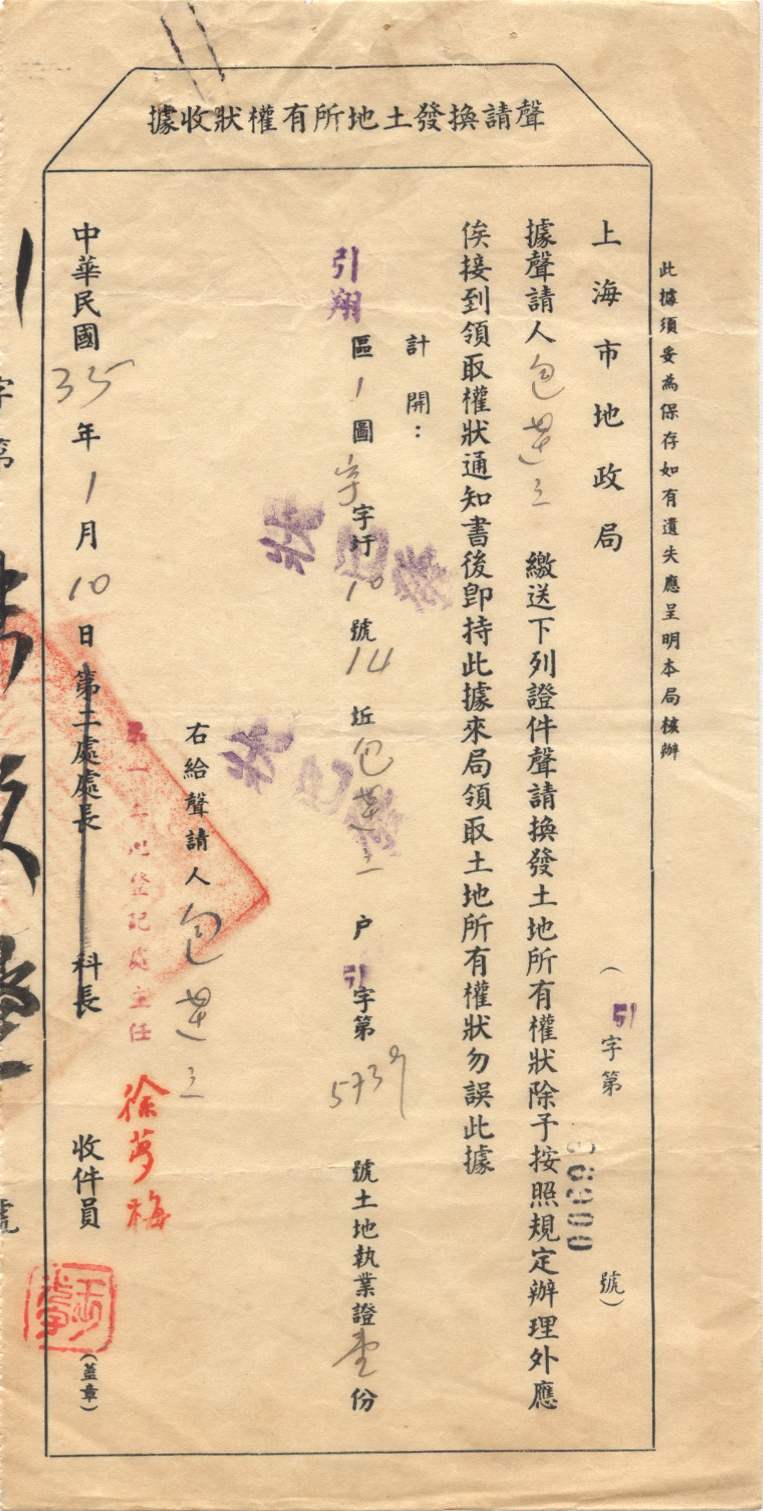 聲請換發土地所有權狀收據
此據須妥為保存如有遺失應呈明本局核辦
上海市地政局 (引字第 號)
據聲請人包蓮 繳送下列證件聲請換發土地所有權狀除予按照規定辦理外應
俟接到領取權狀通知書後卽持此據來局領取土地所有權狀勿誤此據
計開:
引翔區1圖 字圩10號14坵包蓮 户引字第5739號土地執業證壹份
右給聲請人包蓮
登記處主任 徐夢梅
中華民國35年1月10日 第二處處長 科長 收件員 (蓋章)